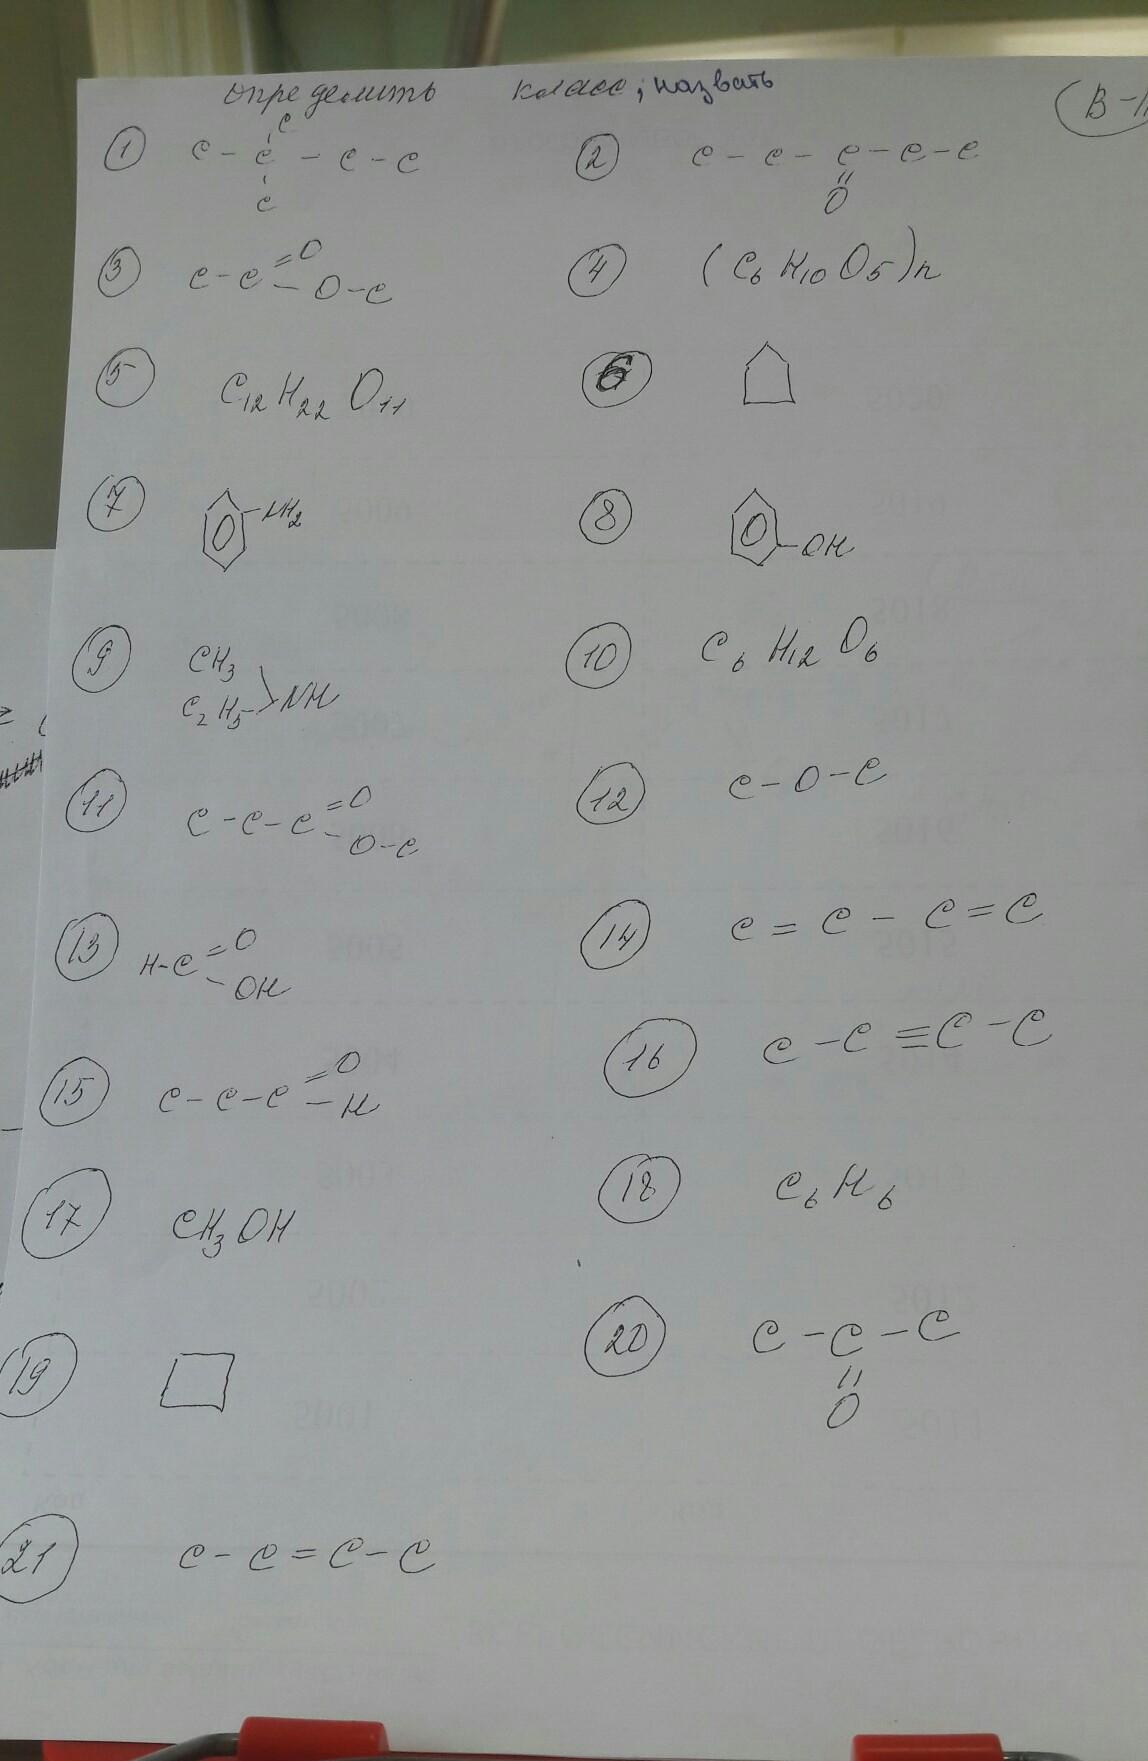 Определить класс; назвать
C
① C - C - C - C
C
② C - C - C - C - C
=
O
③ C - C =O
- O - C
④ (C₆H₁₀O₅)n
⑤ C₁₂H₂₂O₁₁
⑥
⑦ -NH₂
⑧ -OH
⑨ CH₃
C₂H₅ >NH
⑩ C₆H₁₂O₆
⑪ C - C - C =O
- O - C
⑫ C - O - C
⑬ H - C =O
- OH
⑭ C = C - C = C
⑮ C - C - C =O
- H
⑯ C - C ≡ C - C
⑰ CH₃OH
⑱ C₆H₆
⑲
⑳ C - C - C
=
O
㉑ C - C = C - C